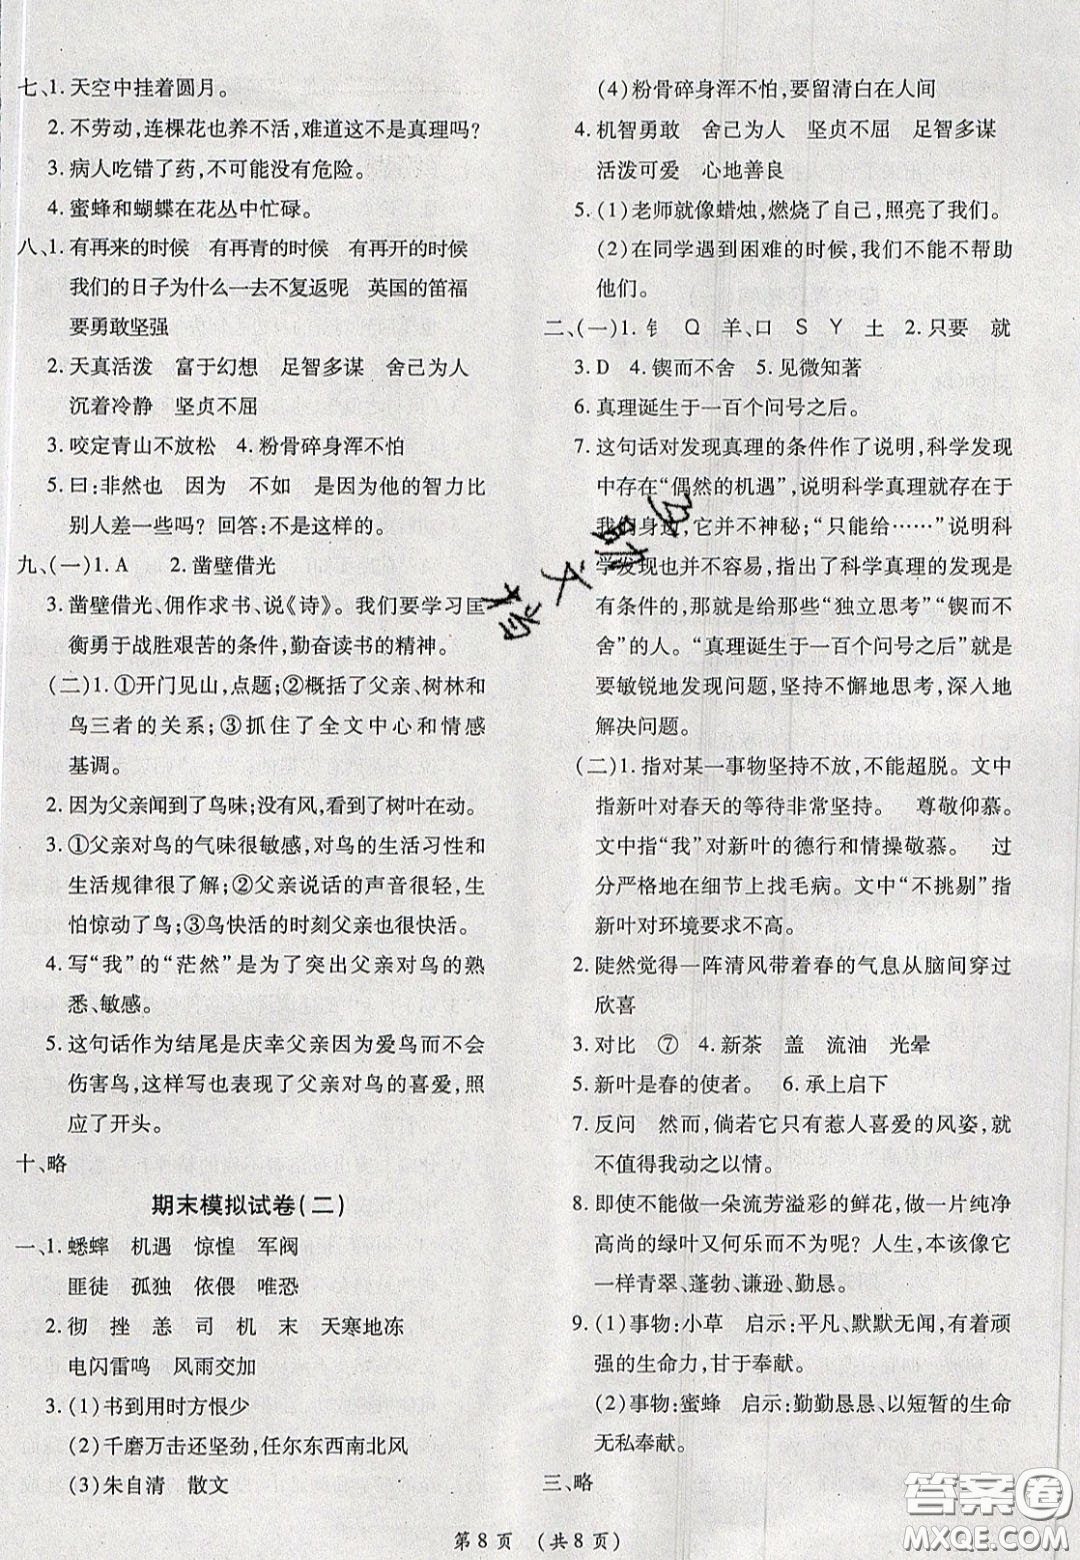 七、1. 天空中挂着圆月。
2. 不劳动,连棵花也养不活,难道这不是真理吗?
3. 病人吃错了药,不可能没有危险。
4. 蜜蜂和蝴蝶在花丛中忙碌。
八、1. 有再来的时候 有再青的时候 有再开的时候
我们的日子为什么一去不复返呢 英国的笛福
要勇敢坚强
2. 天真活泼 富于幻想 足智多谋 舍己为人
沉着冷静 坚贞不屈
3. 咬定青山不放松 4. 粉骨碎身浑不怕
5. 曰:非然也 因为 不如 是因为他的智力比
别人差一些吗? 回答:不是这样的。
九、(一)1. A 2. 凿壁借光
3. 凿壁借光、佣作求书、说《诗》。我们要学习匡
衡勇于战胜艰苦的条件,勤奋读书的精神。
(二)1. ①开门见山,点题;②概括了父亲、树林和
鸟三者的关系;③抓住了全文中心和情感
基调。
2. 因为父亲闻到了鸟味;没有风,看到了树叶在动。
3. ①父亲对鸟的气味很敏感,对鸟的生活习性和
生活规律很了解;②父亲说话的声音很轻,生
怕惊动了鸟;③鸟快活的时刻父亲也很快活。
4. 写“我”的“茫然”是为了突出父亲对鸟的熟
悉、敏感。
5. 这句话作为结尾是庆幸父亲因为爱鸟而不会
伤害鸟,这样写也表现了父亲对鸟的喜爱,照
应了开头。
十、略
期末模拟试卷(二)
一、1. 蟋蟀 机遇 惊惶 军阀
匪徒 孤独 依偎 唯恐
2. 彻 挫 恙 司 机 末 天寒地冻
电闪雷鸣 风雨交加
3. (1)书到用时方恨少
(2)千磨万击还坚劲,任尔东西南北风
(3)朱自清 散文
(4)粉骨碎身浑不怕,要留清白在人间
4. 机智勇敢 舍己为人 坚贞不屈 足智多谋
活泼可爱 心地善良
5. (1)老师就像蜡烛,燃烧了自己,照亮了我们。
(2)在同学遇到困难的时候,我们不能不帮助
他们。
二、(一)1. 钅 Q 羊、口 S Y 土 2. 只要 就
3. D 4. 锲而不舍 5. 见微知著
6. 真理诞生于一百个问号之后。
7. 这句话对发现真理的条件作了说明,科学发现
中存在“偶然的机遇”,说明科学真理就存在于
我们身边,它并不神秘;“只能给……”说明科
学发现也并不容易,指出了科学真理的发现是
有条件的,那就是给那些“独立思考”“锲而不
舍”的人。“真理诞生于一百个问号之后”就是
要敏锐地发现问题,坚持不懈地思考,深入地
解决问题。
(二)1. 指对某一事物坚持不放,不能超脱。文中
指新叶对春天的等待非常坚持。 尊敬仰慕。
文中指“我”对新叶的德行和情操敬慕。 过
分严格地在细节上找毛病。文中“不挑剔”指
新叶对环境要求不高。
2. 陡然觉得一阵清风带着春的气息从脑间穿过
欣喜
3. 对比 ⑦ 4. 新茶 盖 流油 光晕
5. 新叶是春的使者。 6. 承上启下
7. 反问 然而,倘若它只惹人喜爱的风姿,就
不值得我动之以情。
8. 即使不能做一朵流芳溢彩的鲜花,做一片纯净
高尚的绿叶又何乐而不为呢? 人生,本该像它
一样青翠、蓬勃、谦逊、勤恳。
9. (1)事物:小草 启示:平凡、默默无闻,有着顽
强的生命力,甘于奉献。
(2)事物:蜜蜂 启示:勤勤恳恳、以短暂的生命
无私奉献。
三、略
第 8 页 (共 8 页)
答案圈
MXQE.COM